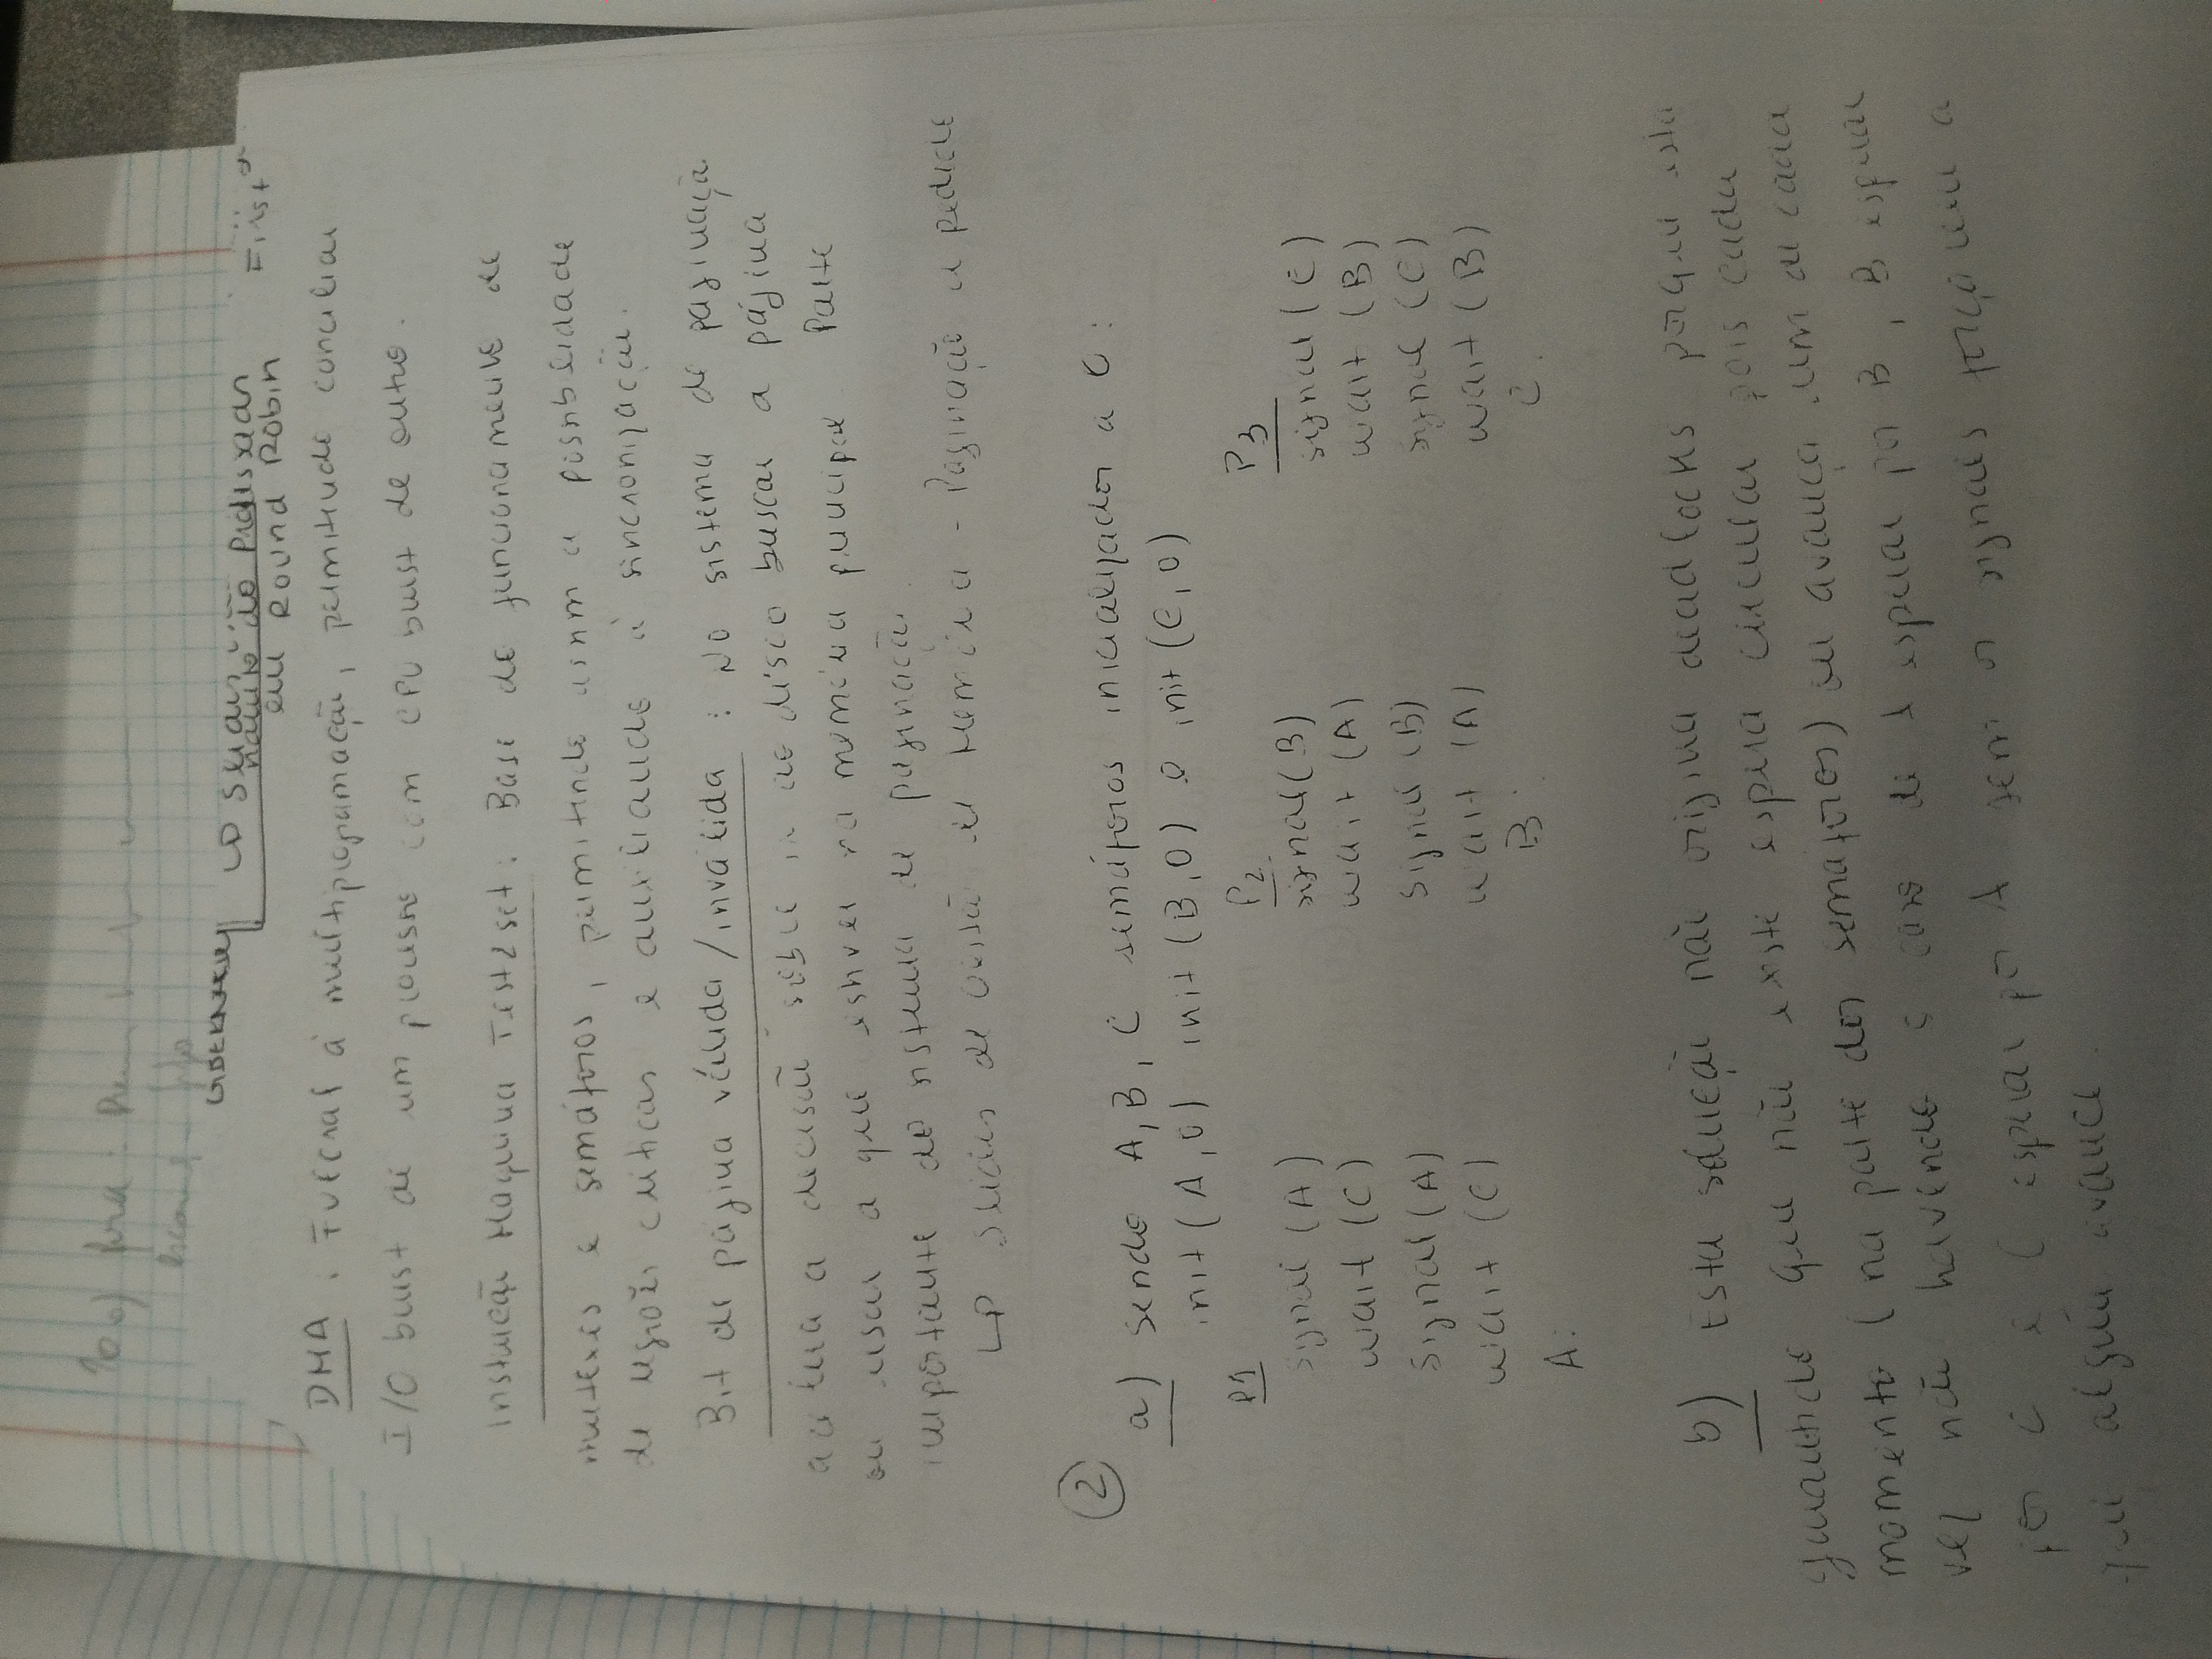 Sear
não é do Processar
em Round Robin
DMA : Fulcral à multiprogramação, permitindo conciliar
I/O burst de um processo com CPU burst de outro.
Instrução Máquina Test&set : Base do funcionamento de
mutexes e semáforos, permitindo assim a possibilidade
de regiões críticas e auxiliando à sincronização.
Bit de página válida/inválida : No sistema de paginação
auxilia a decisão sobre ir ao disco buscar a página
ou usar a que estiver na memória principal. Parte
importante do sistema de paginação.
↳ Slides de Gestão de Memória - Paginação a pedido
② a) Sendo A, B, C semáforos inicializados a 0:
init (A,0) init (B,0) e init (C,0)
P1 P2 P3
signal (A) signal (B) signal (C)
wait (C) wait (A) wait (B)
signal (A) signal (B) signal (C)
wait (C) wait (A) wait (B)
A: B: C:
b) Esta solução não origina deadlocks porque está
garantido que não existe espera circular pois cada
momento (na parte dos semáforos) se avança um de cada
vez não havendo o caso de A esperar por B, B esperar
por C e C esperar por A sem os signals forçarem a
que alguém avance.